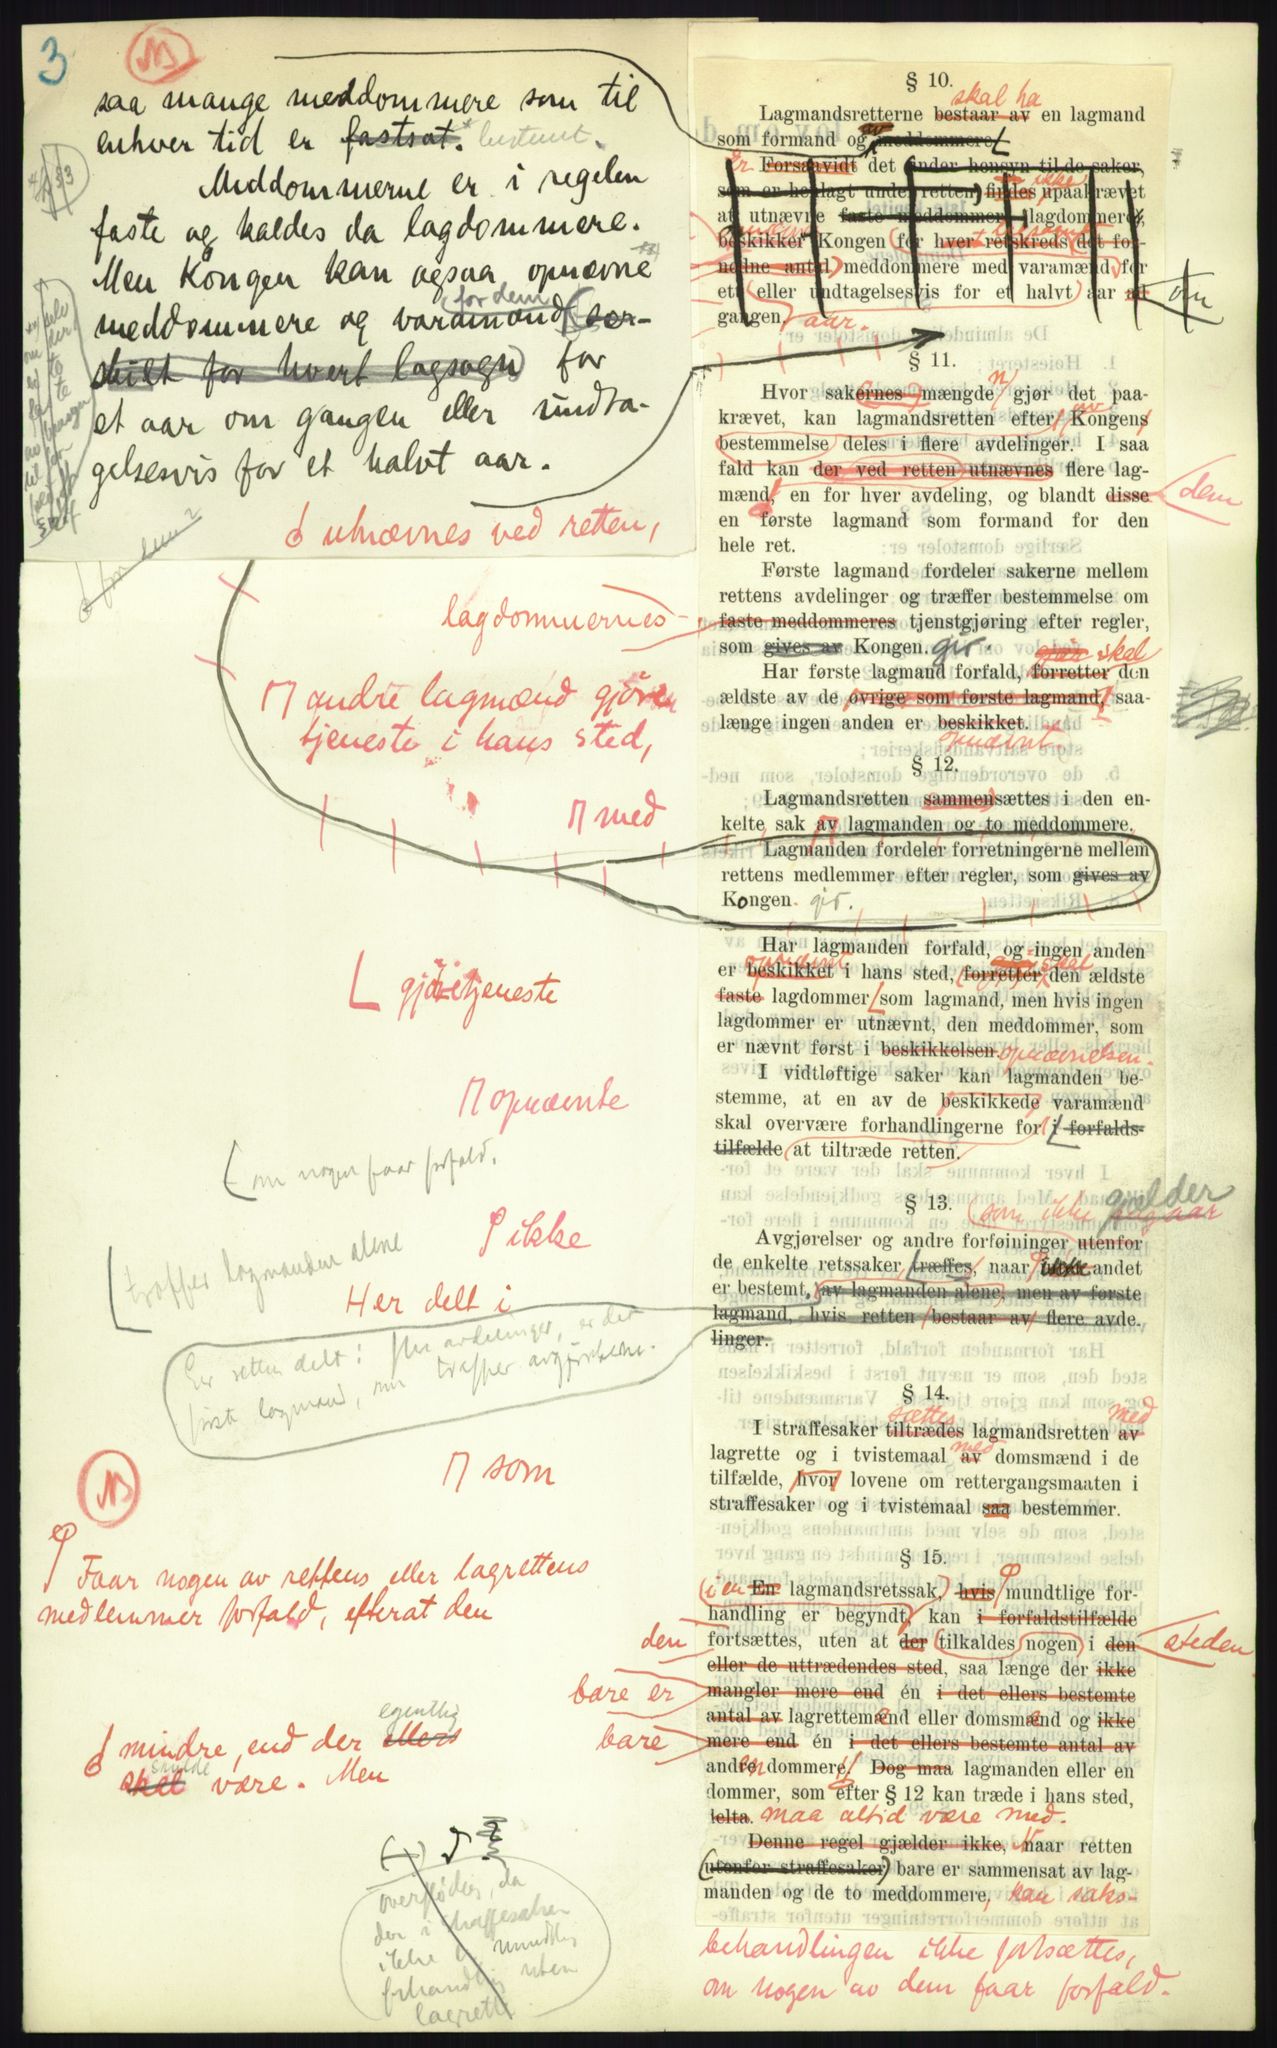 3
saa mange meddommere som til
enhver tid er fastsat. bestemt.
Meddommerne er i regelen
faste og kaldes da lagdommere.
Men Kongen kan ogsaa opnævne
meddommere og varamænd (for dem) (sær-
skilt for hvert lagsogn) for
et aar om gangen eller undta-
gelsesvis for et halvt aar.
utnævnes ved retten,
lagdommernes
andre lagmænd gjøre
tjeneste i hans sted,
med
gjøre tjeneste
opnævnte
om nogen faar forfald.
ikke
træffer lagmanden alene
Her delt i
Er retten delt i flere avdelinger, er det
første lagmand, som træffer avgjørelsene.
som
Faar nogen av rettens eller lagrettens
medlemmer forfald, efterat den
den
bare er
bare
mindre, end der ellers egentlig
skal skulde være. Men
overflødig, da
der i straffesaker
ikke er mundtlig
forhandling uten
lagrette
§ 10.
skal ha
Lagmandsretterne bestaar av en lagmand
som formand og av meddommere
Er Forsaavidt det under hensyn til de saker,
som er henlagt under retten, findes ikke upaakrævet
at utnævne faste meddommere (lagdommere),
beskikker Kongen (for hver retskreds (det for-
nødne antal) meddommere med varamænd for
ett (eller undtagelsesvis for et halvt) aar ad
om
gangen. aar.
§ 11.
Hvor sakernes mængde gjør det paa-
krævet, kan lagmandsretten efter av Kongens
bestemmelse deles i flere avdelinger. I saa
fald kan der ved retten utnævnes flere lag-
mænd, en for hver avdeling, og blandt disse dem
en første lagmand som formand for den
hele ret.
Første lagmand fordeler sakerne mellem
rettens avdelinger og træffer bestemmelse om
faste meddommeres tjenstgjøring efter regler,
som gives av Kongen. gir.
gjør skal
Har første lagmand forfald, forretter den
ældste av de øvrige som første lagmand, saa-
længe ingen anden er beskikket.
opnævnt.
§ 12.
Lagmandsretten sammensættes i den en-
kelte sak av lagmanden og to meddommere.
Lagmanden fordeler forretningerne mellem
rettens medlemmer efter regler, som gives av
Kongen. gir.
Har lagmanden forfald, og ingen anden
opnævnt skal
er beskikket i hans sted, forretter den ældste
faste lagdommer som lagmand, men hvis ingen
lagdommer er utnævnt, den meddommer, som
er nævnt først i beskikkelsen. opnævnelsen.
I vidtløftige saker kan lagmanden be-
stemme, at en av de beskikkede varamænd
skal overvære forhandlingerne for i forfalds-
tilfælde at tiltræde retten.
§ 13. (som ikke angaar gjælder
Avgjørelser og andre forføininger utenfor
de enkelte retssaker træffes, naar ikke andet
er bestemt, av lagmanden alene, men av første
lagmand, hvis retten bestaar av flere avde-
linger.
§ 14.
sættes med
I straffesaker tiltrædes lagmandsretten av
lagrette og i tvistemaal av med domsmænd i de
tilfælde, hvor lovene om rettergangsmaaten i
straffesaker og i tvistemaal saa bestemmer.
§ 15.
(i en En lagmandsretssak,) hvis mundtlige for-
handling er begyndt, kan i forfaldstilfælde
fortsættes, uten at der tilkaldes nogen i den steden
eller de uttrædendes sted, saa længe der ikke
mangler mere end én i det ellers bestemte
antal av lagrettemænd eller domsmænd og ikke
mere end én i det ellers bestemte antal av
andre dommere. Dog maa lagmanden eller en
dommer, som efter § 12 kan træde i hans sted,
delta. maa altid være med.
Denne regel gjælder ikke, Naar retten
(utenfor straffesaker) bare er sammensat av lag-
manden og de to meddommere, kan saks-
behandlingen ikke fortsættes,
om nogen av dem faar forfald.